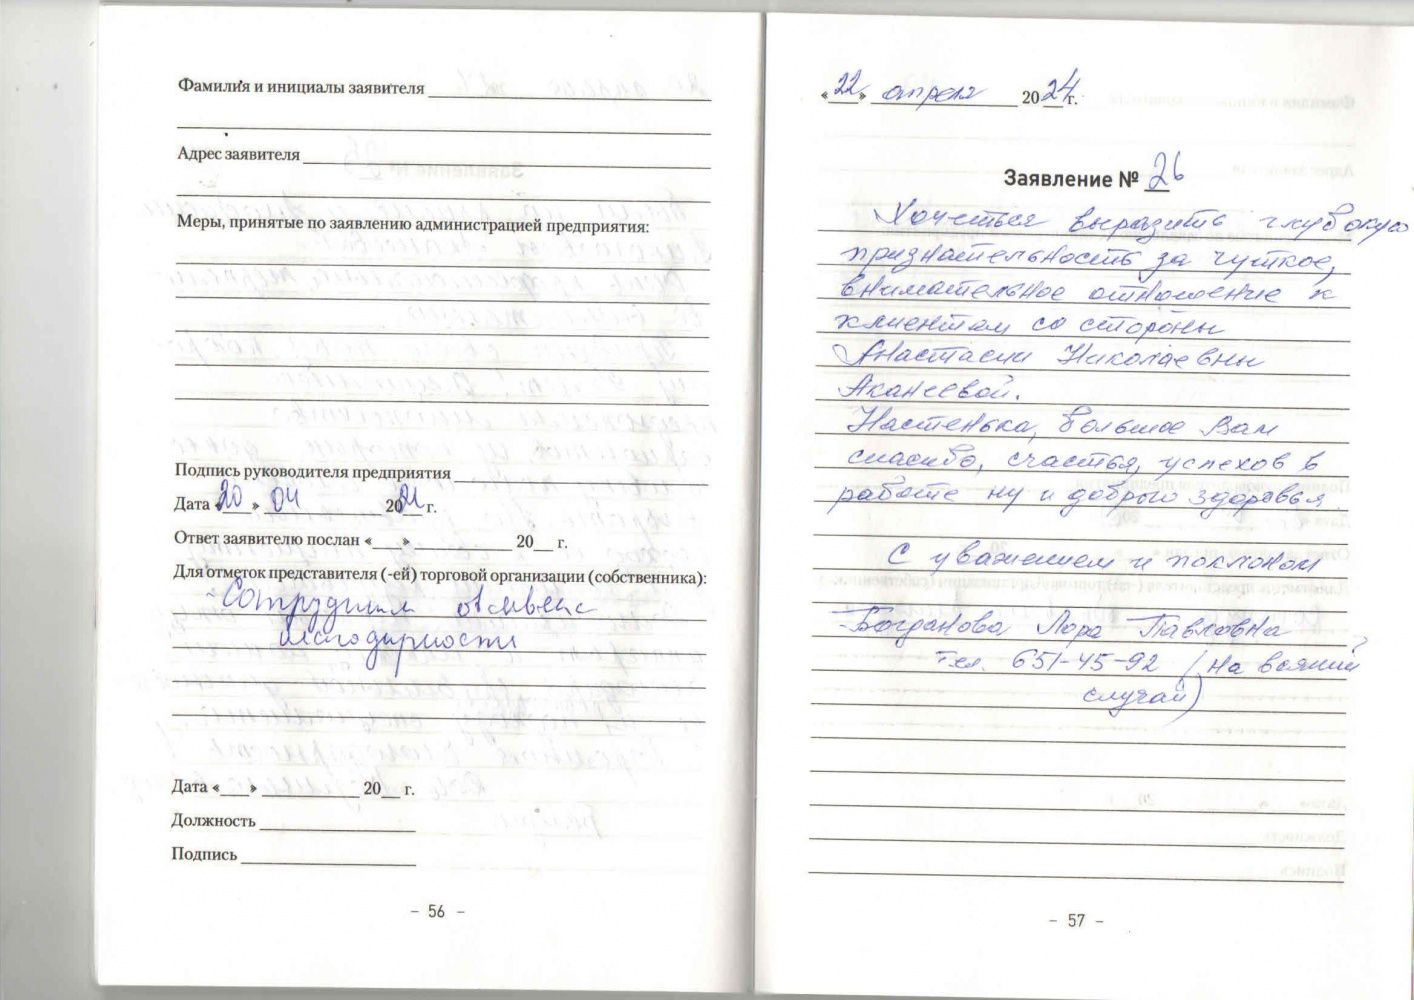 Фамилия и инициалы заявителя
Адрес заявителя
Меры, принятые по заявлению администрацией предприятия:
Подпись руководителя предприятия
Дата «20» 04 20 г.
Ответ заявителю послан «___» 20__ г.
Для отметок представителя (-ей) торговой организации (собственника):
Сотрудникам
благодарности
Дата «___» 20__ г.
Должность
Подпись
- 56 -
«22» апреля 2024 г.
Заявление № 26
Хочеться выразить глубокую
признательность за чуткое,
внимательное отношение к
клиентам со стороны
Анастасии Николаевны
Аканеевой.
Настенька, большое Вам
спасибо, счастья, успехов в
работе ну и доброго здоровья
С уважением и поклоном
- Богданова Лора Павловна
тел. 651-45-92 (на всякий
случай)
- 57 -